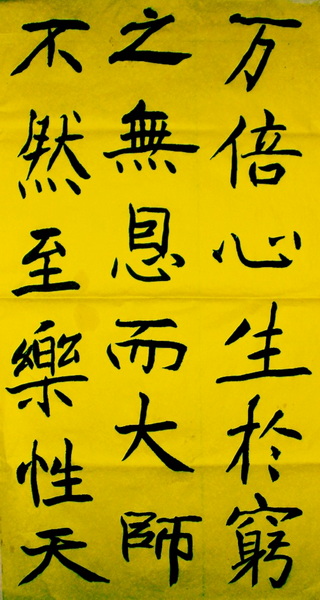 万倍心生於窮
之無息而大師
不然至樂性天